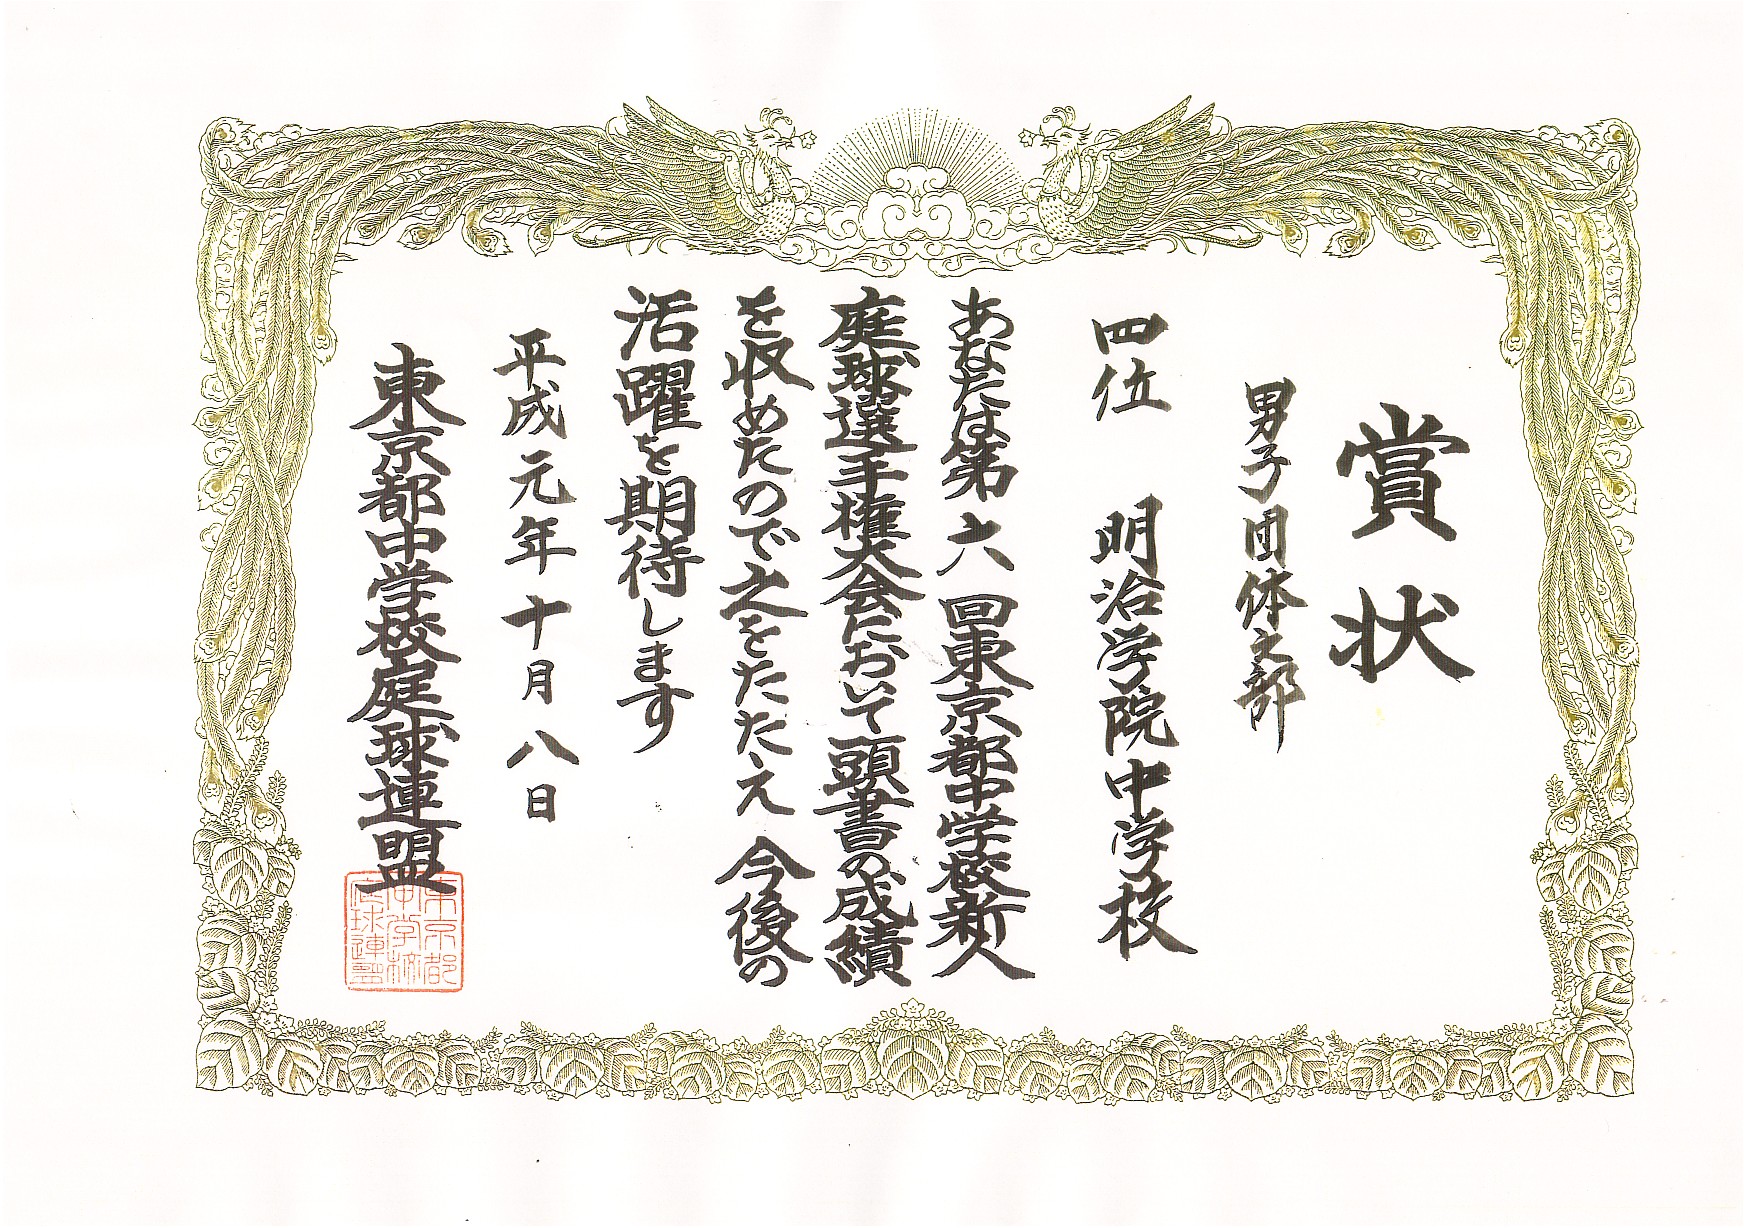 賞状
男子団体之部
四位 明治学院中学校
あなたは第六回東京都中学校新人
庭球選手権大会において頭書の成績
を収めたので之をたたえ今後の
活躍を期待します
平成元年十月八日
東京都中学校庭球連盟
東京都
中学校
庭球連盟